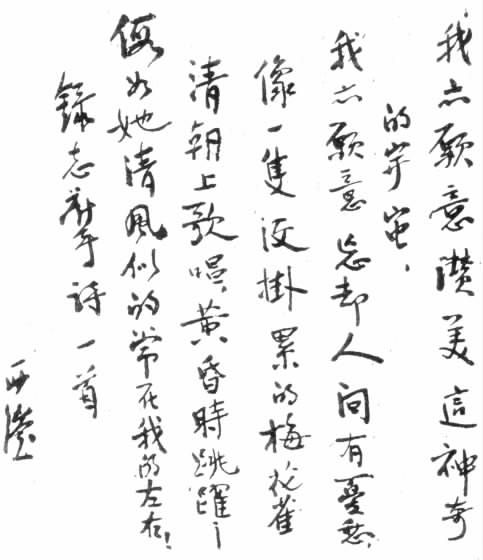 我亦願意讚美這神奇
的宇宙,
我亦願意忘却人间有憂愁,
像一隻沒掛累的梅花雀
清朝上歌唱,黃昏時跳躍;—
假如她清風似的常在我的左右!
錄志摩詩一首
西瀅